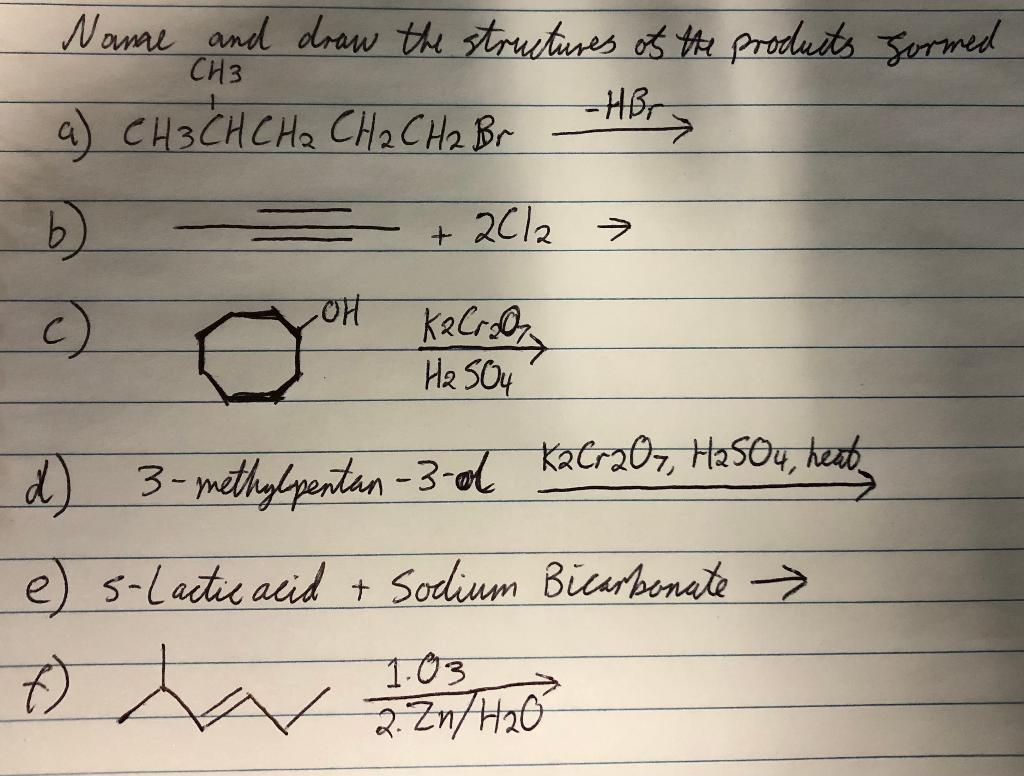 Name and draw the structures of the products formed
CH3
a) CH3CHCH2 CH2CH2 Br -HBr
b) + 2Cl2 →
c) OH K2Cr2O7
H2SO4
d) 3-methylpentan-3-ol K2Cr2O7, H2SO4, heat
e) s-Lactic acid + Sodium Bicarbonate →
f) 1.O3
2.Zn/H2O